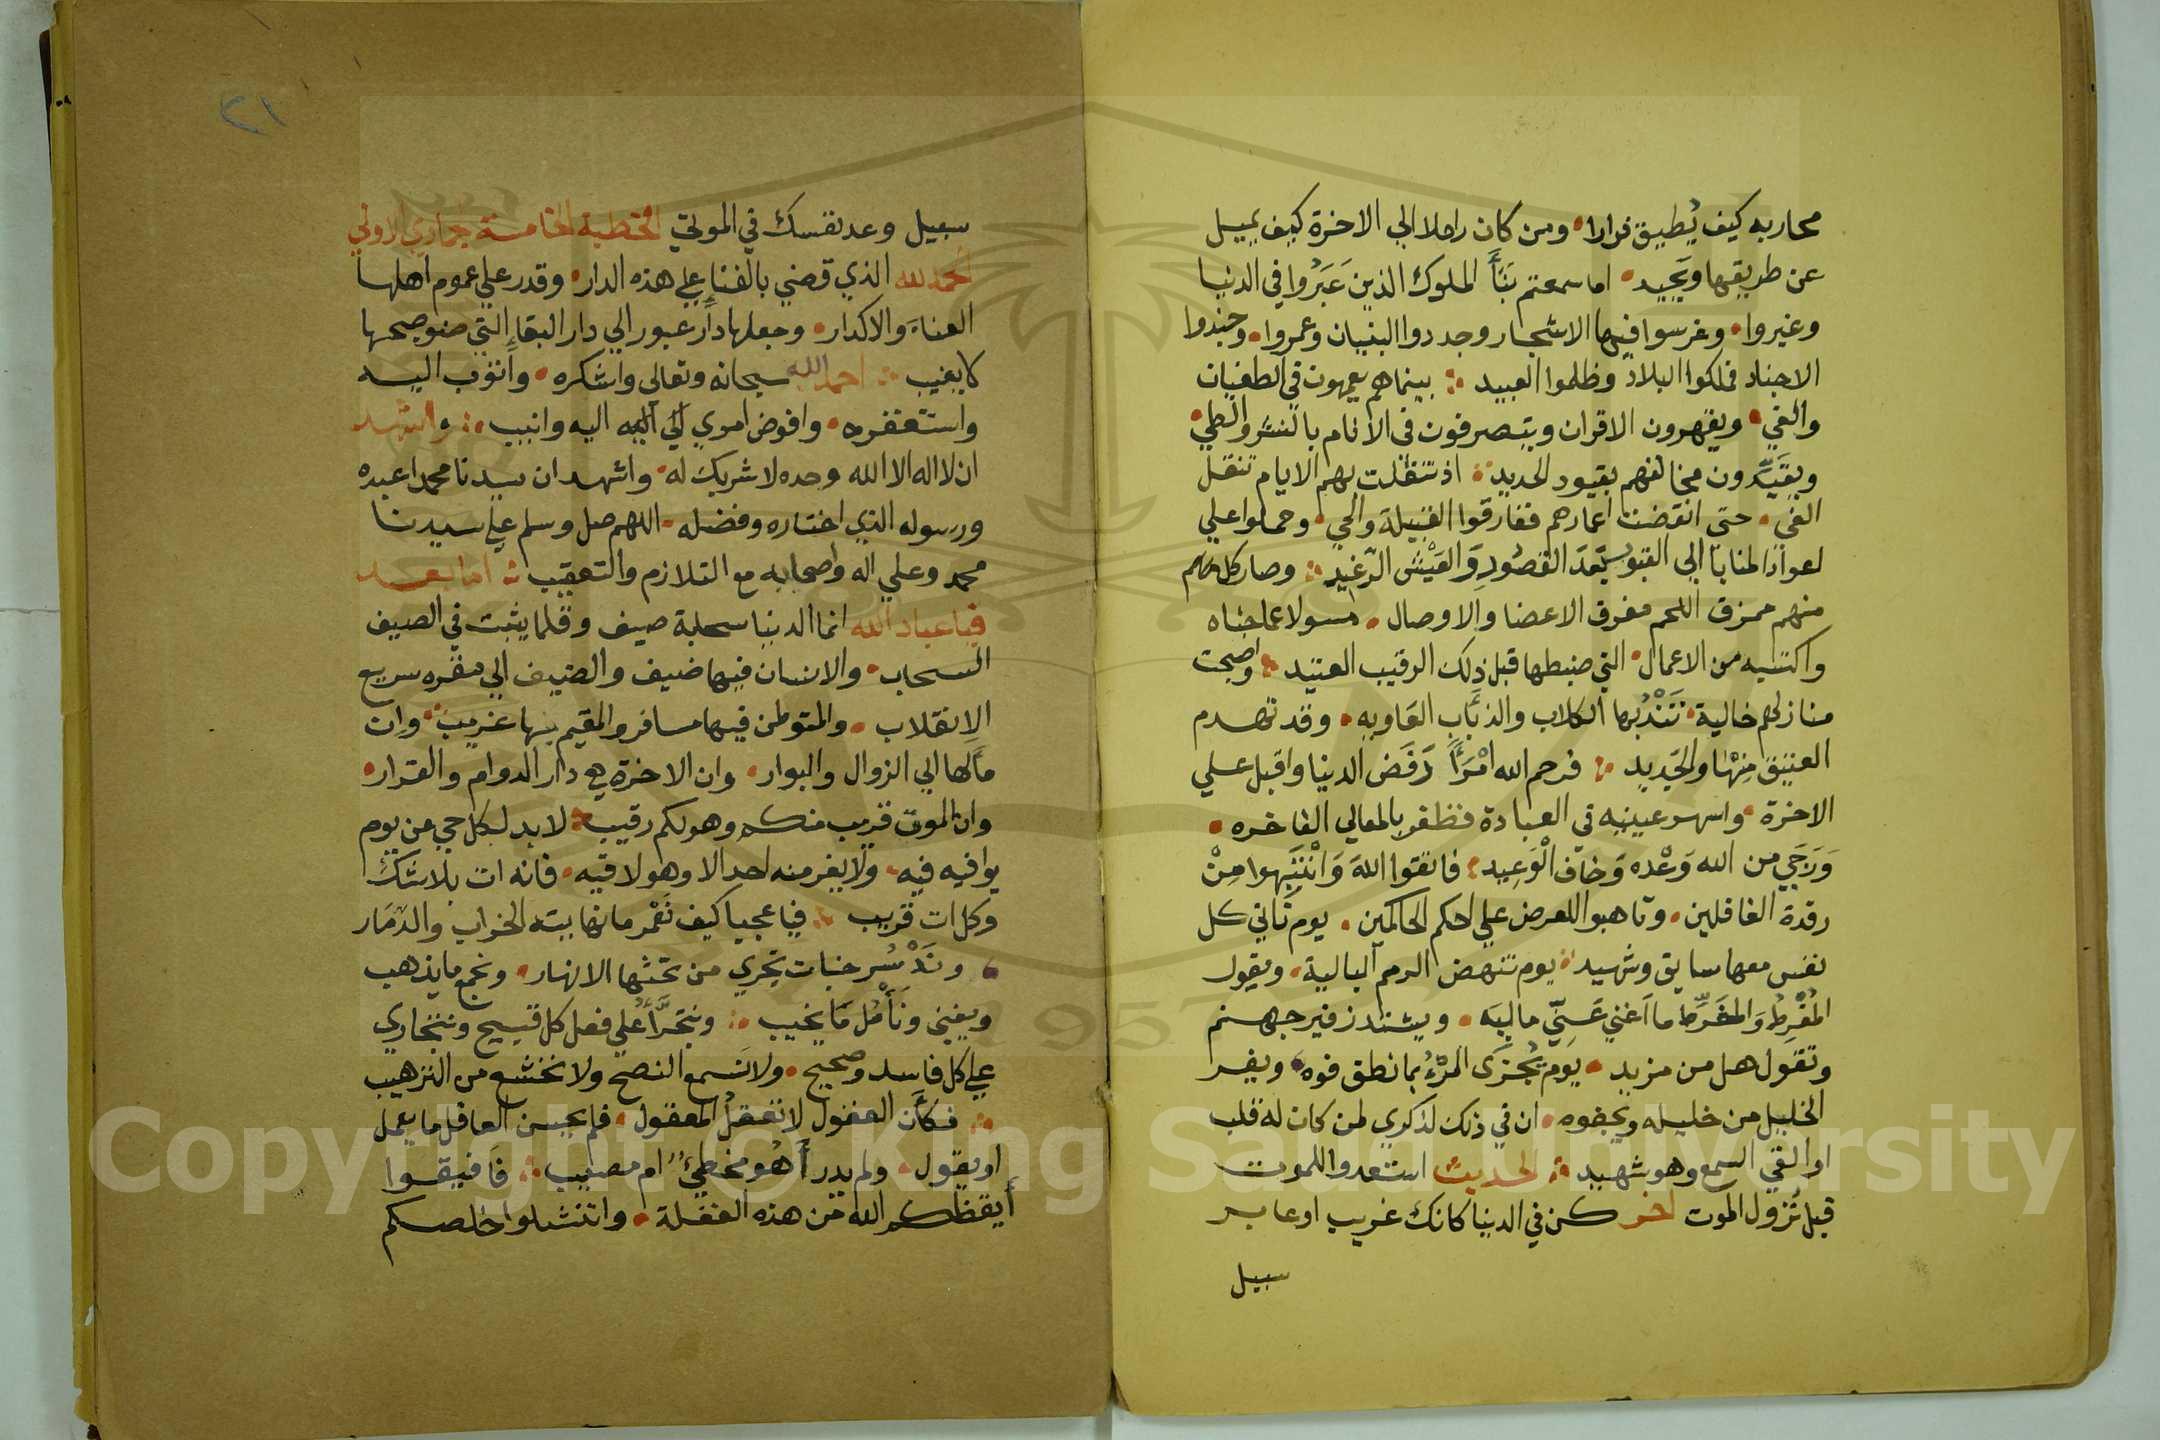 محاربه كيف يُطيق فرارا • ومن كان راحلا الي الاخرة كيف يميل
عن طريقها ويَحِيد • اما سمعتم بَنَأَ الملوك الذين عَبَرُوا في الدنيا
وغيروا • وغرسوا فيها الاشجار وجددوا البنيان وعمروا • وجندوا
الاجناد فملكوا البلاد وظلموا العبيد ∴ بينماهم يعمهون في الطغيان
والغي • ويقهرون الاقران ويتصرفون في الانام بالنشر والطي •
ويقَيّدون مخالفهم بقيود الحديد ∴ اذ تنقلت بهم الايام تنقل
الفي • حتي انقضت اعمارهم ففارقوا القبيلة والحي • وحملوا علي
اعواد المنايا الي القبور بَعَدَ القصُورِ وَالعَيْش الرّغِيد ∴ وصار كل منهم
منهم ممزق اللحم مفرق الاعضا والاوصال • مسولا عما جناه
واكتسبه من الاعمال • التي ضبطها قبل ذلك الرقيب العتيد ∴ واصبحت
منازلهم خالية • تَنْدُبُها الكلاب والذئاب العَاويه • وقد تهدم
العتيق مِنْهَا والجَديد ∴ فرحم الله امْرَأً رَفَضَ الدنيا واقبل علي
الاخرة • واسهر عينيه في العبادة فظفر بالمعالي الفاخره •
وَرَجَي من الله وَعْده وَخافَ الْوَعِيد ∴ فاتقوا اللهَ وَانْتَبِهوا مِنْ
رقدة الغافلين • وتاهبوا للعرض علي احكم الحاكمين • يوم تَاتي كل
نفس معها سايق وشهيد ∴ يوم تنهض الرمم البالية • ويقول
المُفْرِطُ وَالمُفَرِّط ما اَغني عَنّي ماليَه • ويشتد زفير جهنم
وتقول هل من مزيد • يومَ يُجْزَى المرْءُ بما نطق فوه • ويفر
الخليل من خليله ويجفوه • ان في ذلك لذكري لمن كان له قلب
او القي السمع وهو شهيد ∴ الحديث استعدوا للموت
قبل نُزول الموت اخر كن في الدنيا كانك غريب او عابر
سبيل
٢١
سبيل وعد نفسك في الموتي الخطبة الخامسة جمادي الاولي
الحمد لله الذي قضي بالفناءِ علي هذه الدار • وقدر علي عموم اهلها
العناءَ والاكدار • وجعلها دار عبور الي دار البقاءِ التي ضو صبحها
لا يغيب ∴ احمد الله سبحانه وتعالى واشكره • واتوب اليه
واستغفره • وافوض اموري الي اليه وانيب ∴ واشهد
ان لا اله الا الله وحده لا شريك له • واشهد ان سيدنا محمدا عبده
ورسوله الذي اختاره وفضله • اللهم صل وسلم علي سيدنا
محمد وعلي اله واصحابه مع التلازم والتعقيب ∴ اما بعد
فيا عباد الله انما الدنيا سحابة صيف وقلما يثبت في الصيف
السحاب • والانسان فيها ضيف والضيف الي مقره سريع
الانقلاب • والمتوطن فيها مسافر والمقيم بها غريب ∴ وان
مآلها الي الزوال والبوار • وان الاخرة هي دار الدوام والقرار •
وان الموت قريب منكم وهو لكم رقيب ∴ لا بد لكل حي من يوم
يوافيه فيه • ولا يفر منه احد الا وهو لاقيه • فانه ات بلا شك
وكل ات قريب ∴ فيا عجبا كيف نَعْمر مانهايته الخراب والدّمَار
• ونَدْسُر جنات تجري من تحتها الانهار • ونجمع ما يذهب
ويفني ونَأْمُل مَا يخيب ∴ ونتجَرَّأُ علي فعل كل قبيح ونتجاري
علي كل فاسد وصحيح • ولا نَسمع النصح ولا نخشع من الترهيب
∴ فكأن العقول لا تعقلُ المعقول • فلم يحسن العاقل ما يعمل
او يقول • ولم يدر أَهُو مخطئٌ ام مصيب ∴ فَافيقوا
أيقظكم الله من هذه الغفلة • وانتشلوا خلصكم